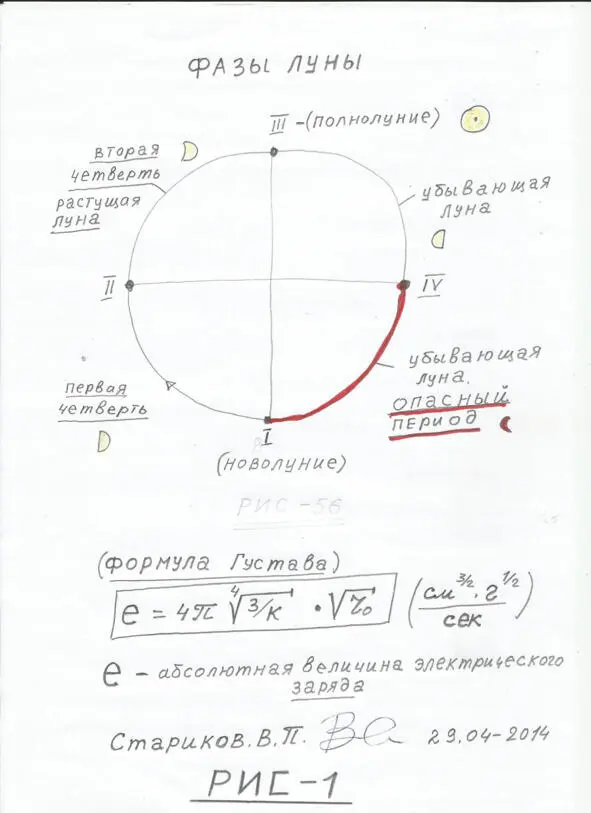 ФАЗЫ ЛУНЫ
III -(ПОЛНОЛУНИЕ)
ВТОРАЯ
ЧЕТВЕРТЬ
РАСТУЩАЯ
ЛУНА
УБЫВАЮЩАЯ
ЛУНА
II
IV
УБЫВАЮЩАЯ
ЛУНА.
ОПАСНЫЙ
ПЕРИОД
ПЕРВАЯ
ЧЕТВЕРТЬ
I
(НОВОЛУНИЕ)
РИС-56
(ФОРМУЛА ГУСТАВА)
e = 4π ∜3/к · √τ₀ (см^3/2 · г^1/2 / сек)
e - абсолютная величина электрического
заряда
Стариков.В.П. 29.04-2014
РИС-1